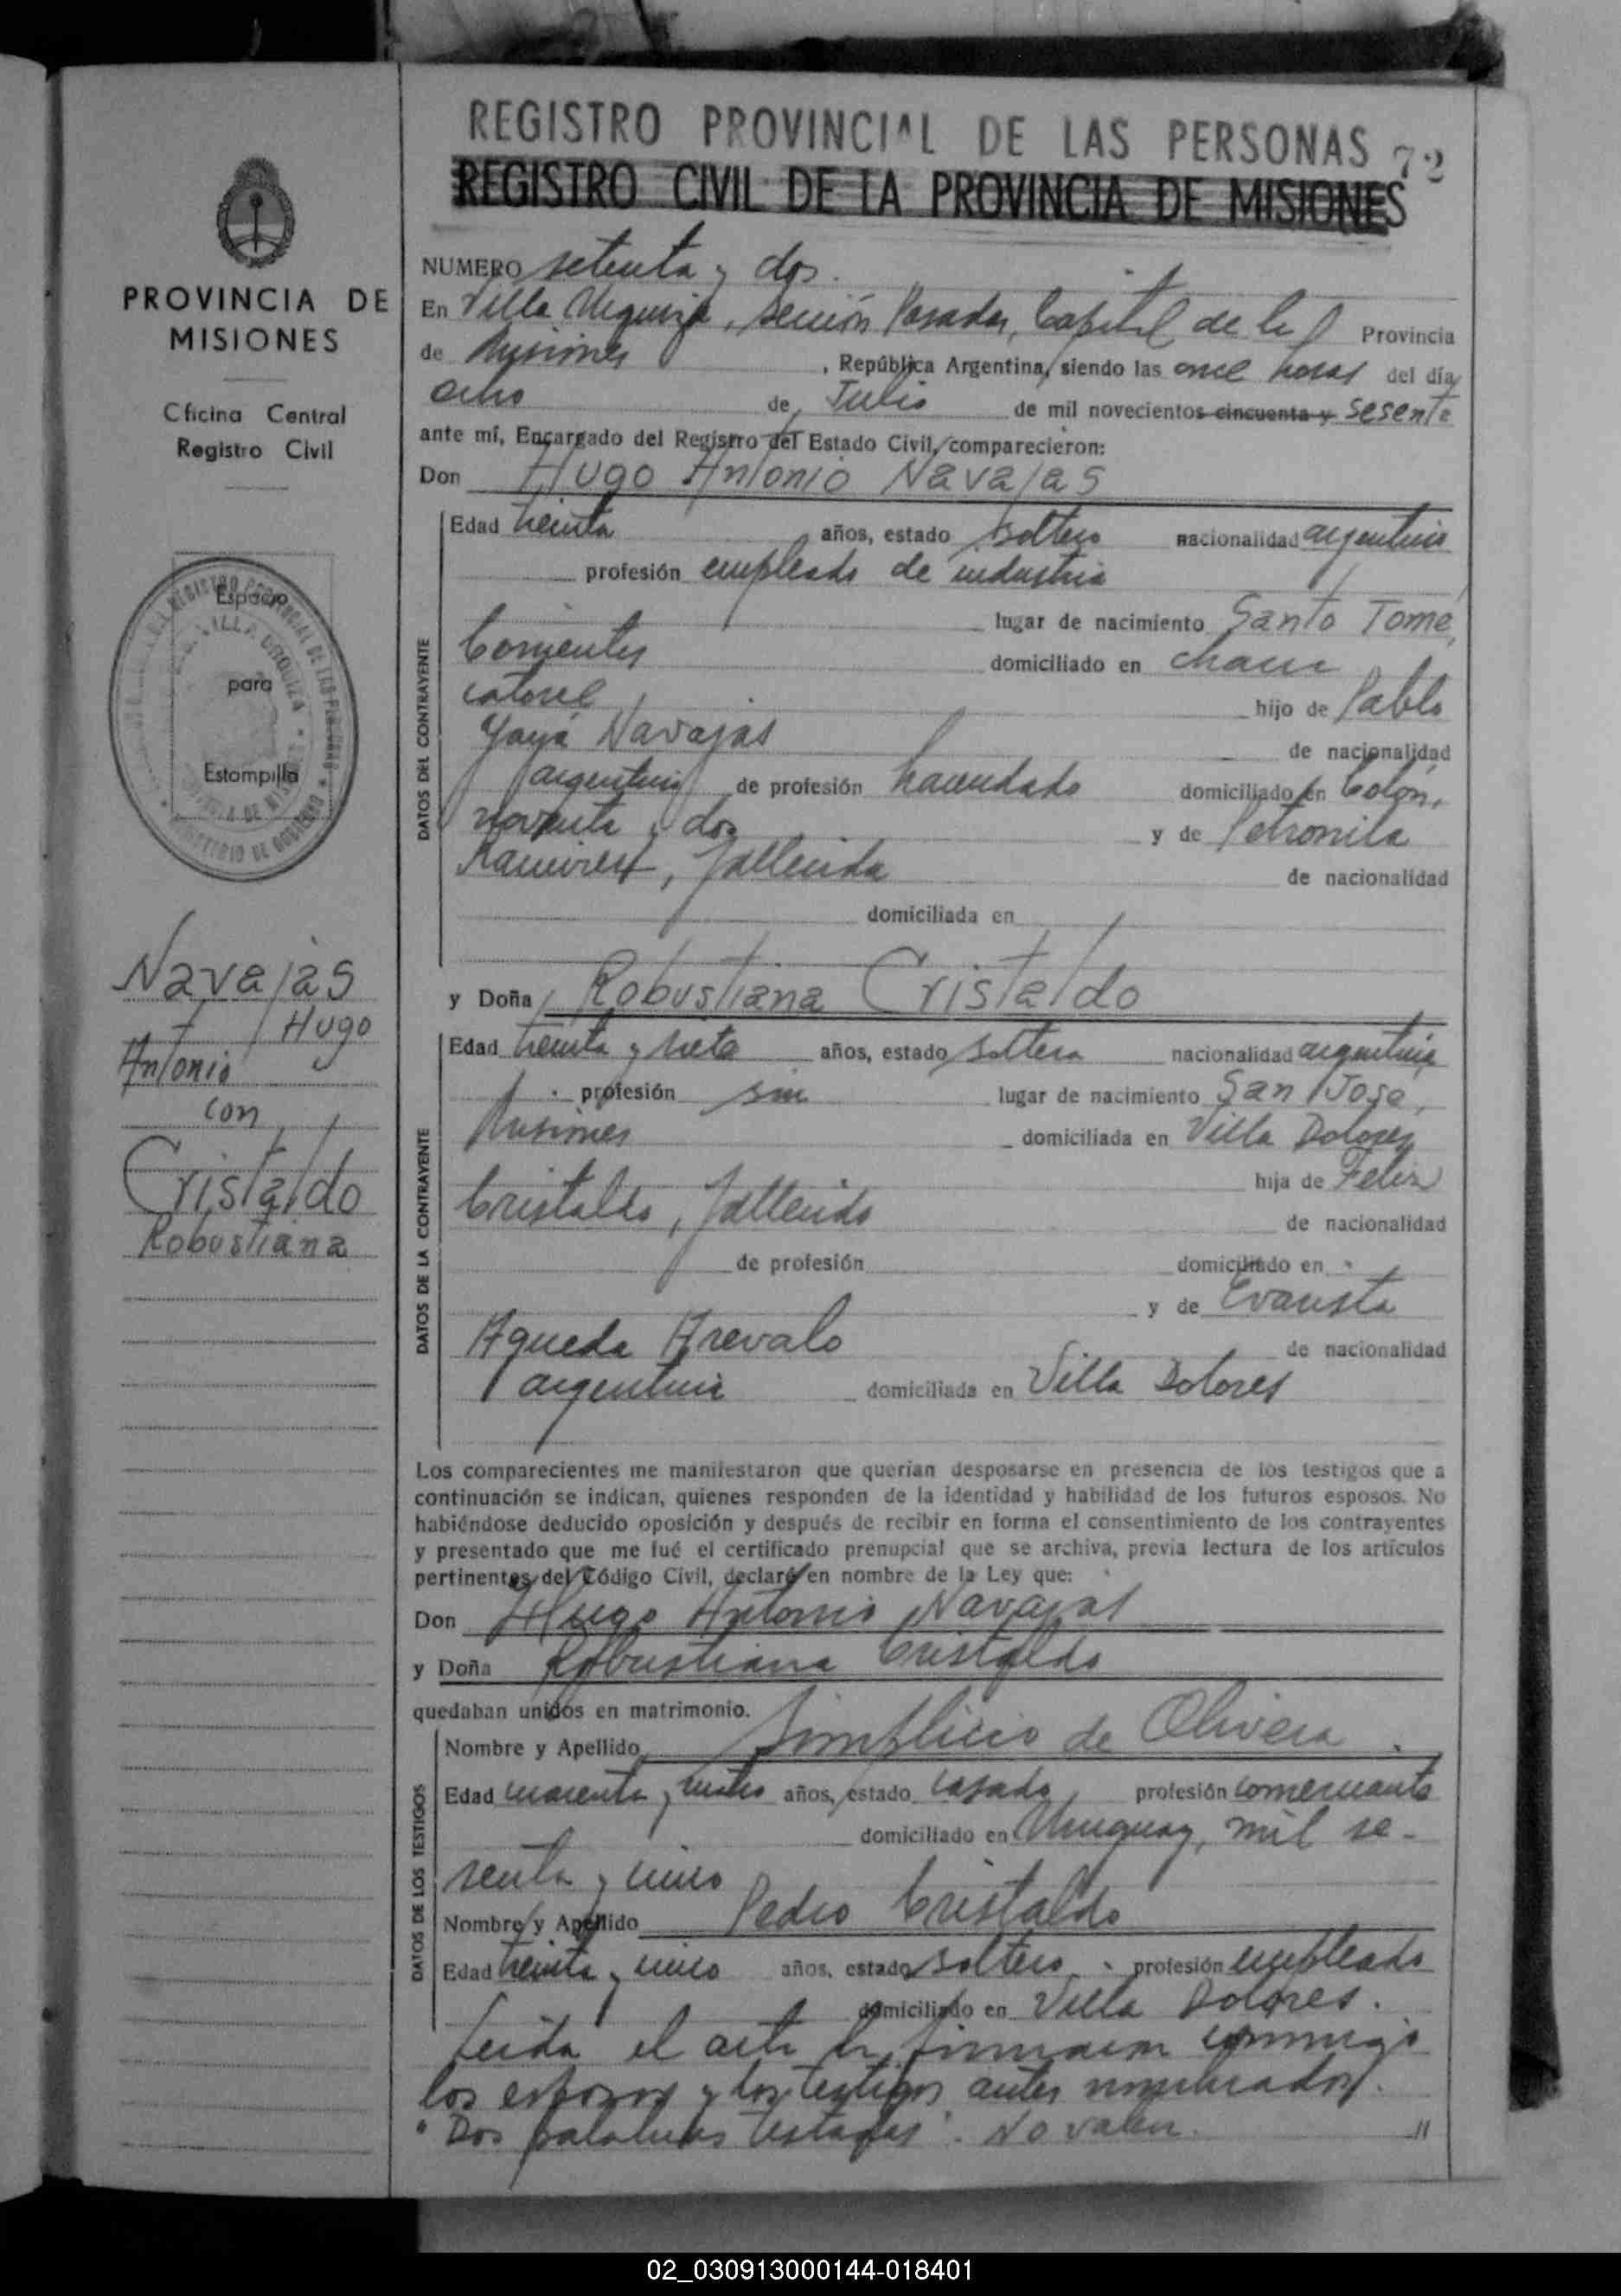 REGISTRO PROVINCIAL DE LAS PERSONAS 72
REGISTRO CIVIL DE LA PROVINCIA DE MISIONES
PROVINCIA DE
MISIONES
Oficina Central
Registro Civil
Espacio
para
Estampilla
Navajas
Hugo
Antonio
con
Cristaldo
Robustiana
NUMERO setenta y dos.
En Villa Urquiza, sección Posadas, Capital de la Provincia
de Misiones, República Argentina, siendo las once horas del día
ocho de Julio de mil novecientos cincuenta y sesenta
ante mí, Encargado del Registro del Estado Civil, comparecieron:
Don Hugo Antonio Navajas
DATOS DEL CONTRAYENTE
Edad treinta años, estado soltero nacionalidad argentino
profesión empleado de industria
lugar de nacimiento Santo Tomé,
Corrientes domiciliado en
catorce hijo de Pablo
Navajas de nacionalidad
argentino de profesión hacendado domiciliado en Colón,
noventa y dos y de Petronila
Ramirez, fallecida de nacionalidad
domiciliada en
y Doña Robustiana Cristaldo
DATOS DE LA CONTRAYENTE
Edad treinta y siete años, estado soltera nacionalidad argentina
profesión sin lugar de nacimiento San José,
Misiones domiciliada en Villa Dolores
hija de Felix
Cristaldo, fallecido de nacionalidad
de profesión domiciliado en
y de Evarista
Agueda Arevalo de nacionalidad
argentina domiciliada en Villa Dolores
Los comparecientes me manifestaron que querían desposarse en presencia de los testigos que a
continuación se indican, quienes responden de la identidad y habilidad de los futuros esposos. No
habiéndose deducido oposición y después de recibir en forma el consentimiento de los contrayentes
y presentado que me fué el certificado prenupcial que se archiva, previa lectura de los artículos
pertinentes del Código Civil, declaré en nombre de la Ley que:
Don Hugo Antonio Navajas
y Doña Robustiana Cristaldo
quedaban unidos en matrimonio.
DATOS DE LOS TESTIGOS
Nombre y Apellido Simplicio de Olivera.
Edad cuarenta y años, estado casado profesión comerciante
domiciliado en Uruguay, mil se-
senta y cinco
Nombre y Apellido Pedro Cristaldo
Edad treinta y cinco años, estado soltero profesión empleado
domiciliado en Villa Dolores.
Leida el acta la firmaron conmigo
los esposos y los testigos antes nombrados.
"Dos palabras testadas". No valen.
02_030913000144-018401